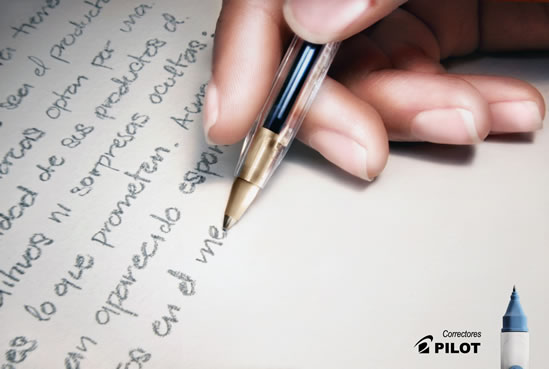 tiene
sea el producto
arcas optan por una
idad de sus productos al
ditivos ni sorpresas ocultas.
es lo que prometen. Aun
an aparecido espon
os en el me
Correctores
PILOT